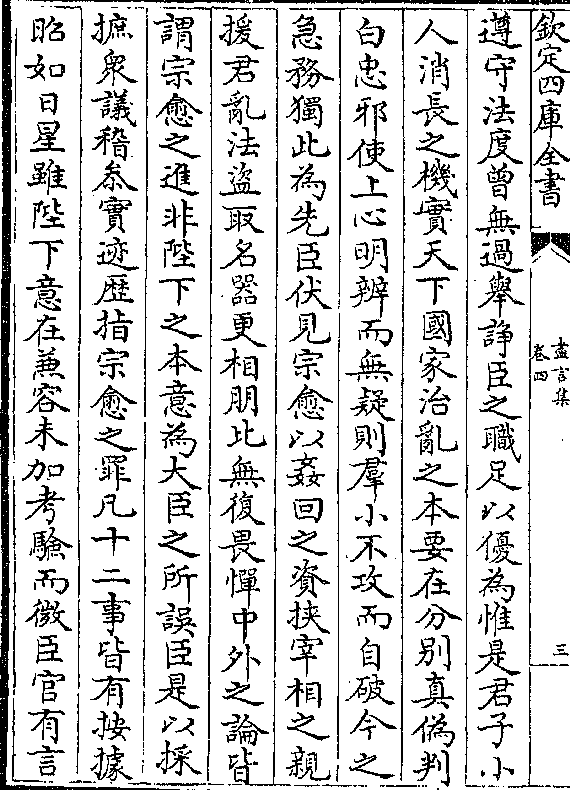 欽定四庫全書
盡言集
卷四
三
遵守法度曾無過舉諍臣之職足以優為惟是君子小
人消長之機實天下國家治亂之本要在分别真偽判
白忠邪使上心明辨而無疑則羣小不攻而自破今之
急務獨此為先臣伏見宗愈以姦回之資挾宰相之親
援君亂法盜取名器更相朋比無復畏憚中外之論皆
謂宗愈之進非陛下之本意為大臣之所誤臣是以採
摭衆議稽叅實迹歴指宗愈之罪凡十二事皆有按據
昭如日星雖陛下意在兼容未加考驗而微臣官有言